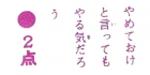 やめておけ
と言っても
やる気だろ
う
●2点